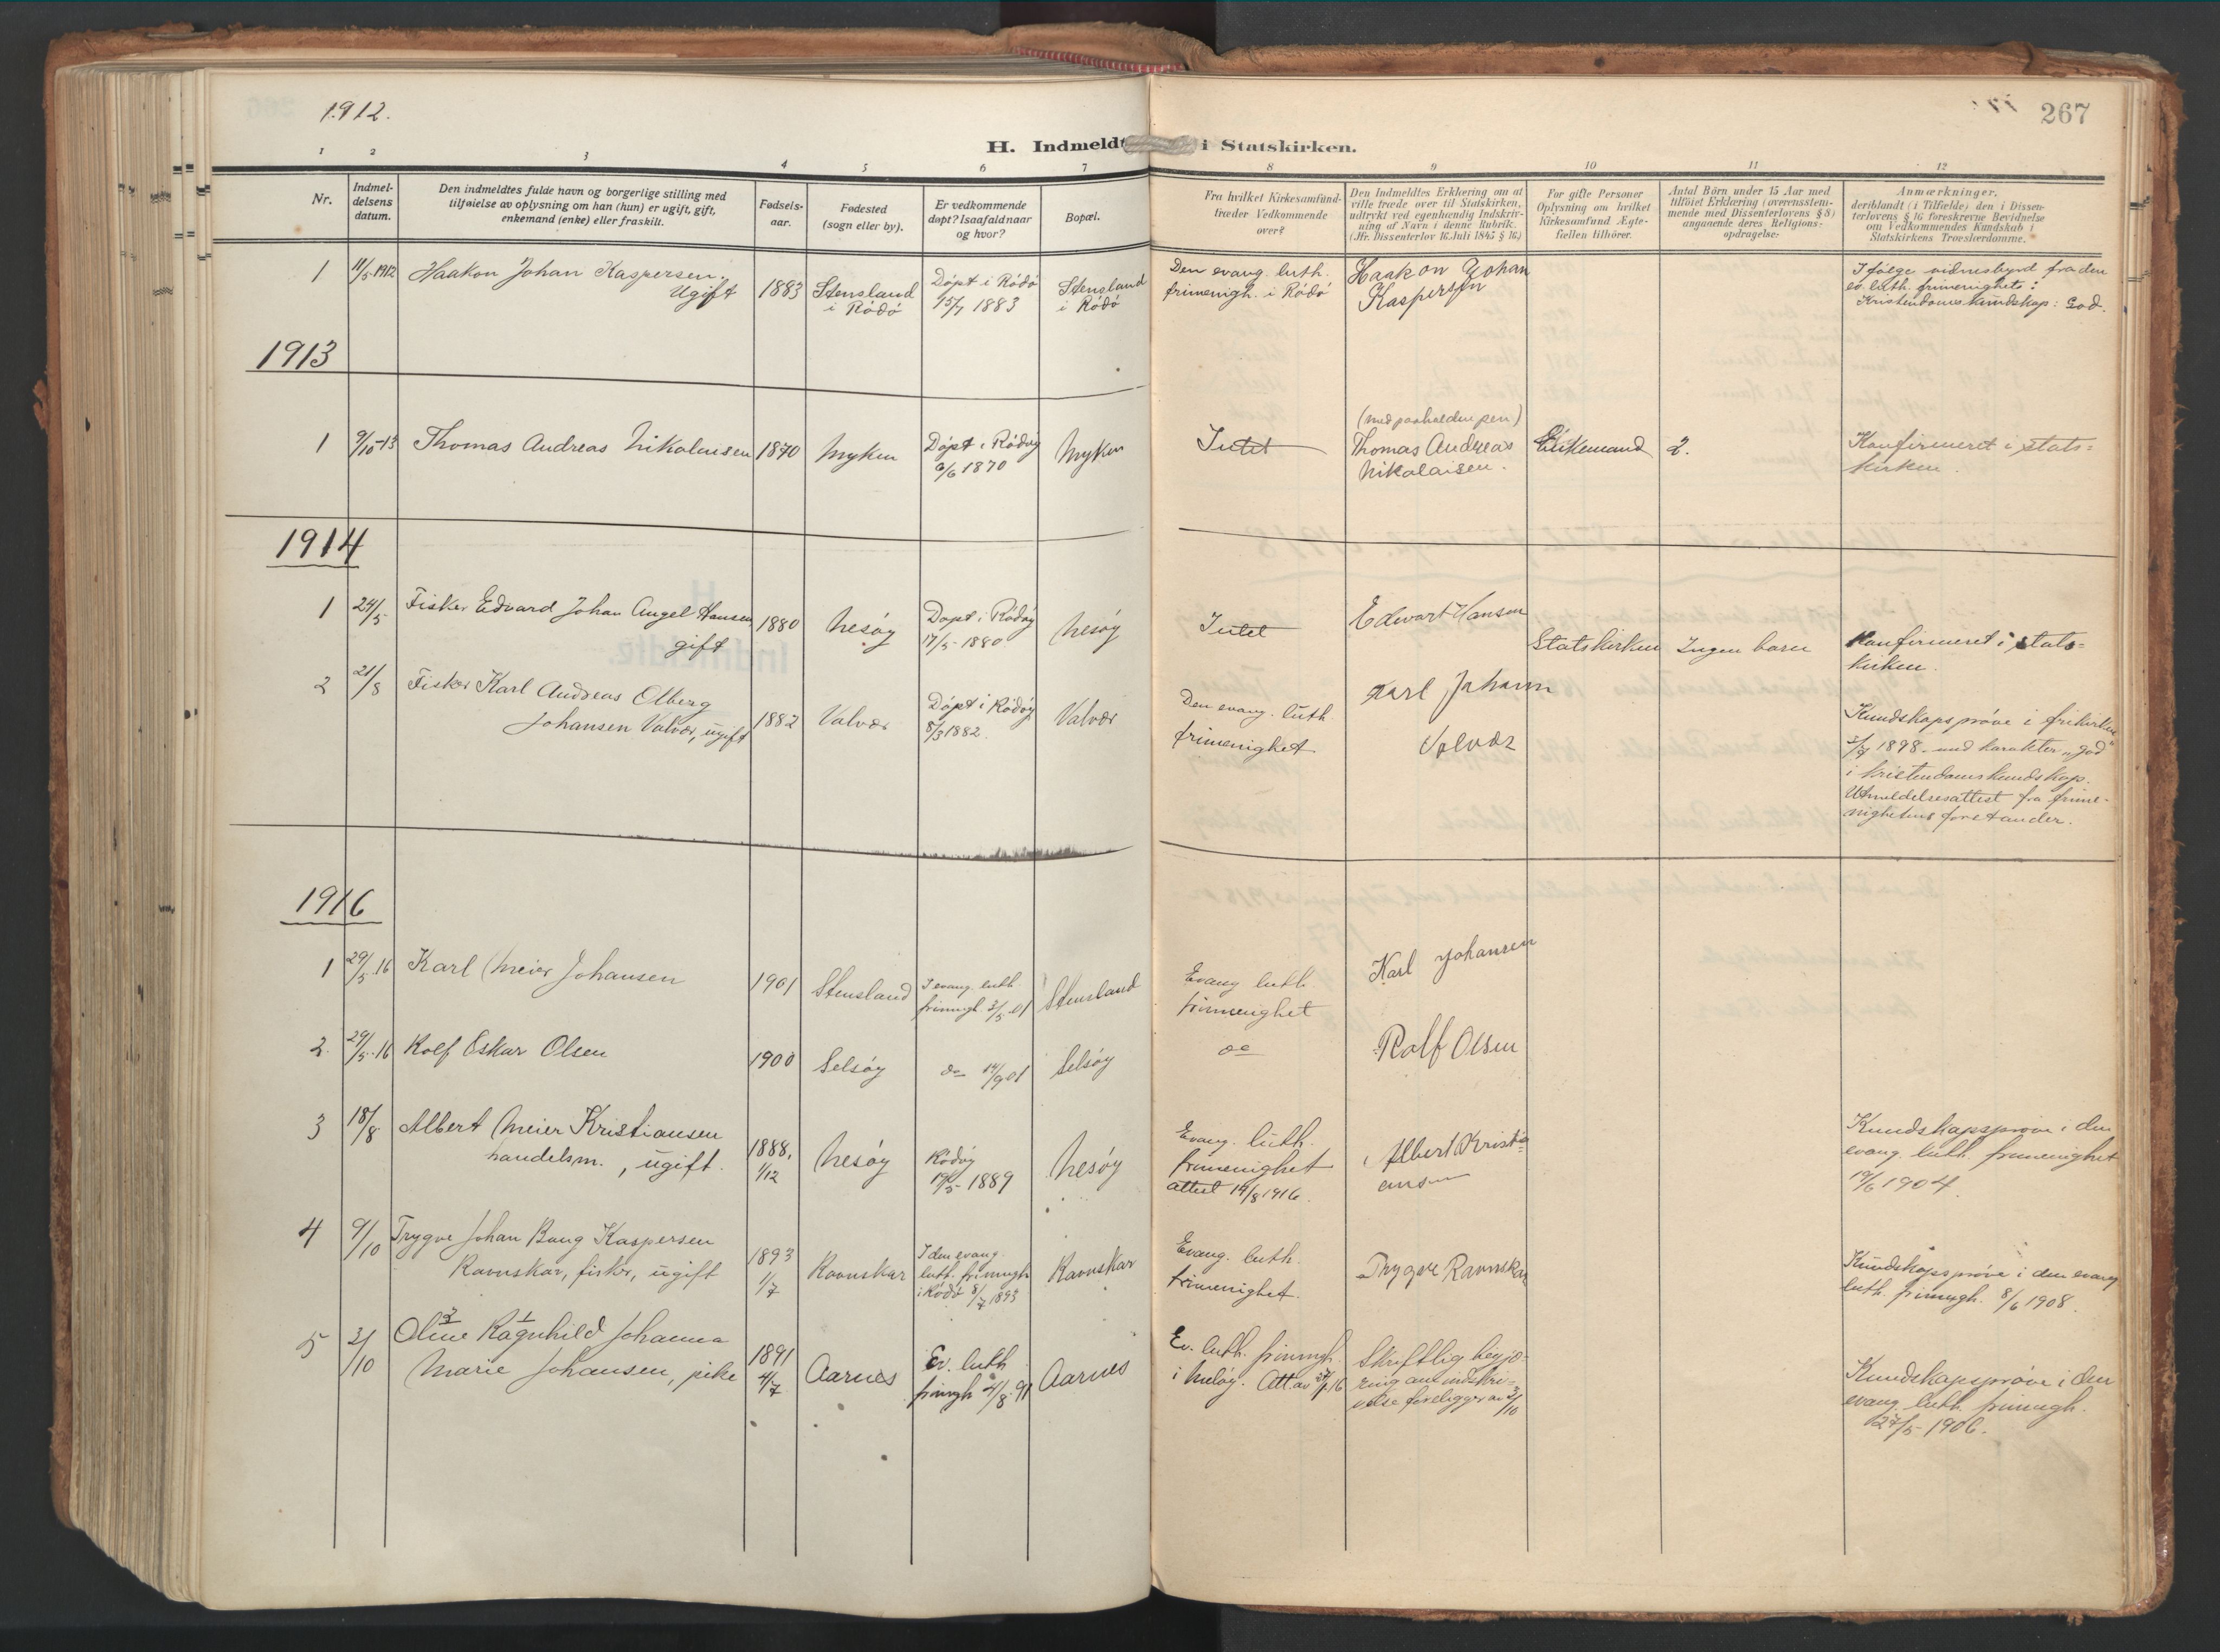 1912.
267
H. Indmeldt i Statskirken.
1 2 3 4 5 6 7 8 9 10 11 12
Nr.
Indmel-
delsens
datum.
Den indmeldtes fulde navn og borgerlige stilling med
tilføielse av oplysning om han (hun) er ugift, gift,
enkemand (enke) eller fraskilt.
Fødsels-
aar.
Fødested
(sogn eller by).
Er vedkommende
døpt? Isaafald naar
og hvor?
Bopæl.
Fra hvilket Kirkesamfund
træder Vedkommende
over?
Den Indmeldtes Erklæring om at
ville træde over til Statskirken,
udtrykt ved egenhændig Indskriv-
ning af Navn i denne Rubrik.
(Jfr. Dissenterlov 16. Juli 1845 § 16.)
For gifte Personer
Oplysning om hvilket
Kirkesamfund Ægte-
fællen tilhörer.
Antal Börn under 15 Aar med
tilföiet Erklæring (overensstem-
mende med Dissenterlovens § 8)
angaaende deres Religions-
opdragelse.
Anmærkninger,
deriblandt (i Tilfælde) den i Dissen-
terlovens § 16 foreskrevne Bevidnelse
om Vedkommendes Kundskab i
Statskirkens Troeslærdomme.
1 11/5-1912 Haakon Johan Kaspersen.
Ugift
1883
Stensland
i Rödö
Döpt i Rödö
15/7 1883
Stensland
i Rödö
Den evang. luth.
frimenigh. i Rödö
Haakon Johan
Kaspersen
Ifølge vidnesbyrd fra den
ev. luth. frimenighet:
Kristendomskundskap: God.
1913
1 9/10-13 Thomas Andreas Nikolaisen 1870 Myken
Döpt i Rödöy
6/6 1870
Myken
Intet
(med paaholden pen)
Thomas Andreas
Nikolaisen.
Enkemand
2.
Konfirmeret i stats-
kirken.
1914
1 24/5 Fisker Edvard Johan Angel Hansen
gift
1880 Nesöy
Döpt i Rödöy
17/5-1880
Nesöy
Intet
Edwart Hansen
Statskirken Ingen barn
Konfirmeret i stats-
kirken.
2 21/8 Fisker Karl Andreas Olberg
Johansen Valvær, ugift
1882 Valvær
Döpt i Rödöy
8/3 1882.
Valvær
Den evang. luth.
frimenighet
Karl Johann
Valvær
Kundskapspröve i frikirken
3/7 1898. med karakter "god"
i kristendomskundskap.
Utmeldelsesattest fra frime-
nighetens forstander.
1916
1 29/5 16 Karl Meier Johansen 1901 Stensland
I evang. luth.
frimngh. 3/5-01
Stensland
Evang luth.
frimenighet
Karl Johansen
2. 29/5.16 Rolf Oskar Olsen 1900 Selsöy do 14/9 01 Selsöy
do
Rolf Olsen
3 18/8 Albert Meier Kristiansen
handelsm., ugift.
1888.
1/12
Nesöy
Rödöy
19/5-1889
Nesöy
Evang. luth.
frimenighet
attest 14/8 1916.
Albert Kristi-
ansen
Kundskapspröve i den
evang. luth. frimenighet
19/6 1904.
4 9/10 Trygve Johan Bang Kaspersen
Ravnskar, fisker, ugift
1893
1/7
Ravnskar
I den evang.
luth. frimngh
i Rödö 8/7 1893
Ravnskar
Evang. luth.
frimenighet.
Trygve Ravnskar
Kundskapspröve i den evang
luth. frimngh. 8/6 1908.
5 3/10 Oline Ragnhild Johanna
Marie Johansen, pike
1891
4/7
Aarnes
Ev. luth
frimgh 4/8.91
Aarnes
Ev. luth. frimngh.
i Melöy. Att. av 16
Skriftlig begjæ-
ring om indskri-
velse foreligger av 3/10
Kundskapspröve i den
evang. luth. frimngh.
27/5-1906.